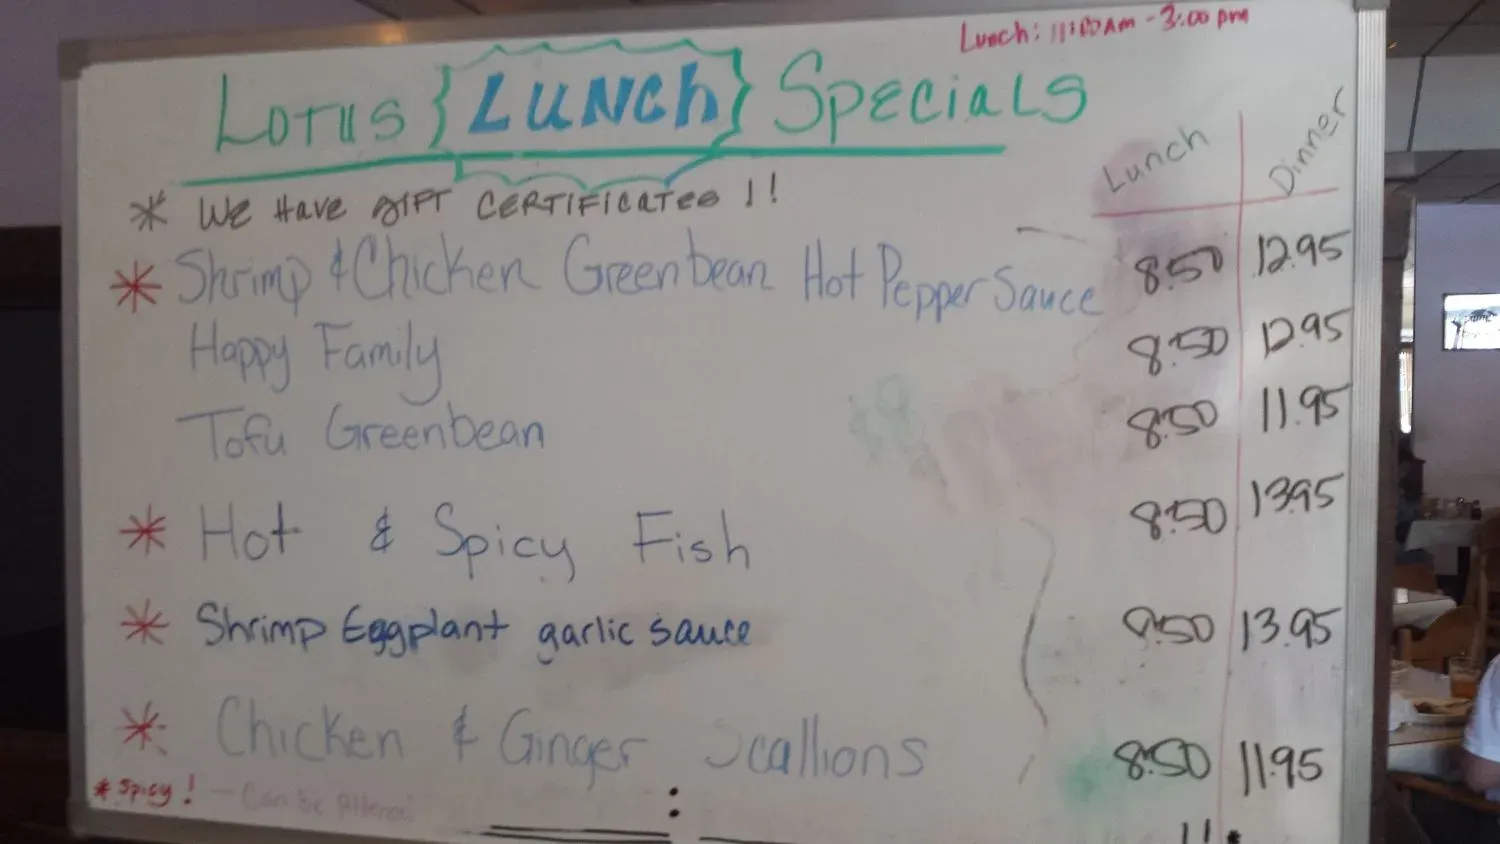 Lunch: 11:00 AM - 3:00 pm
Lotus {Lunch} Specials
Lunch Dinner
* We Have Gift Certificates !!
* Shrimp & Chicken Greenbean Hot Pepper Sauce 8.50 12.95
Happy Family 8.50 12.95
Tofu Greenbean 8.50 11.95
* Hot & Spicy Fish 8.50 13.95
* Shrimp Eggplant garlic sauce 9.50 13.95
* Chicken & Ginger Scallions 8.50 11.95
* Spicy! - Can be Altered